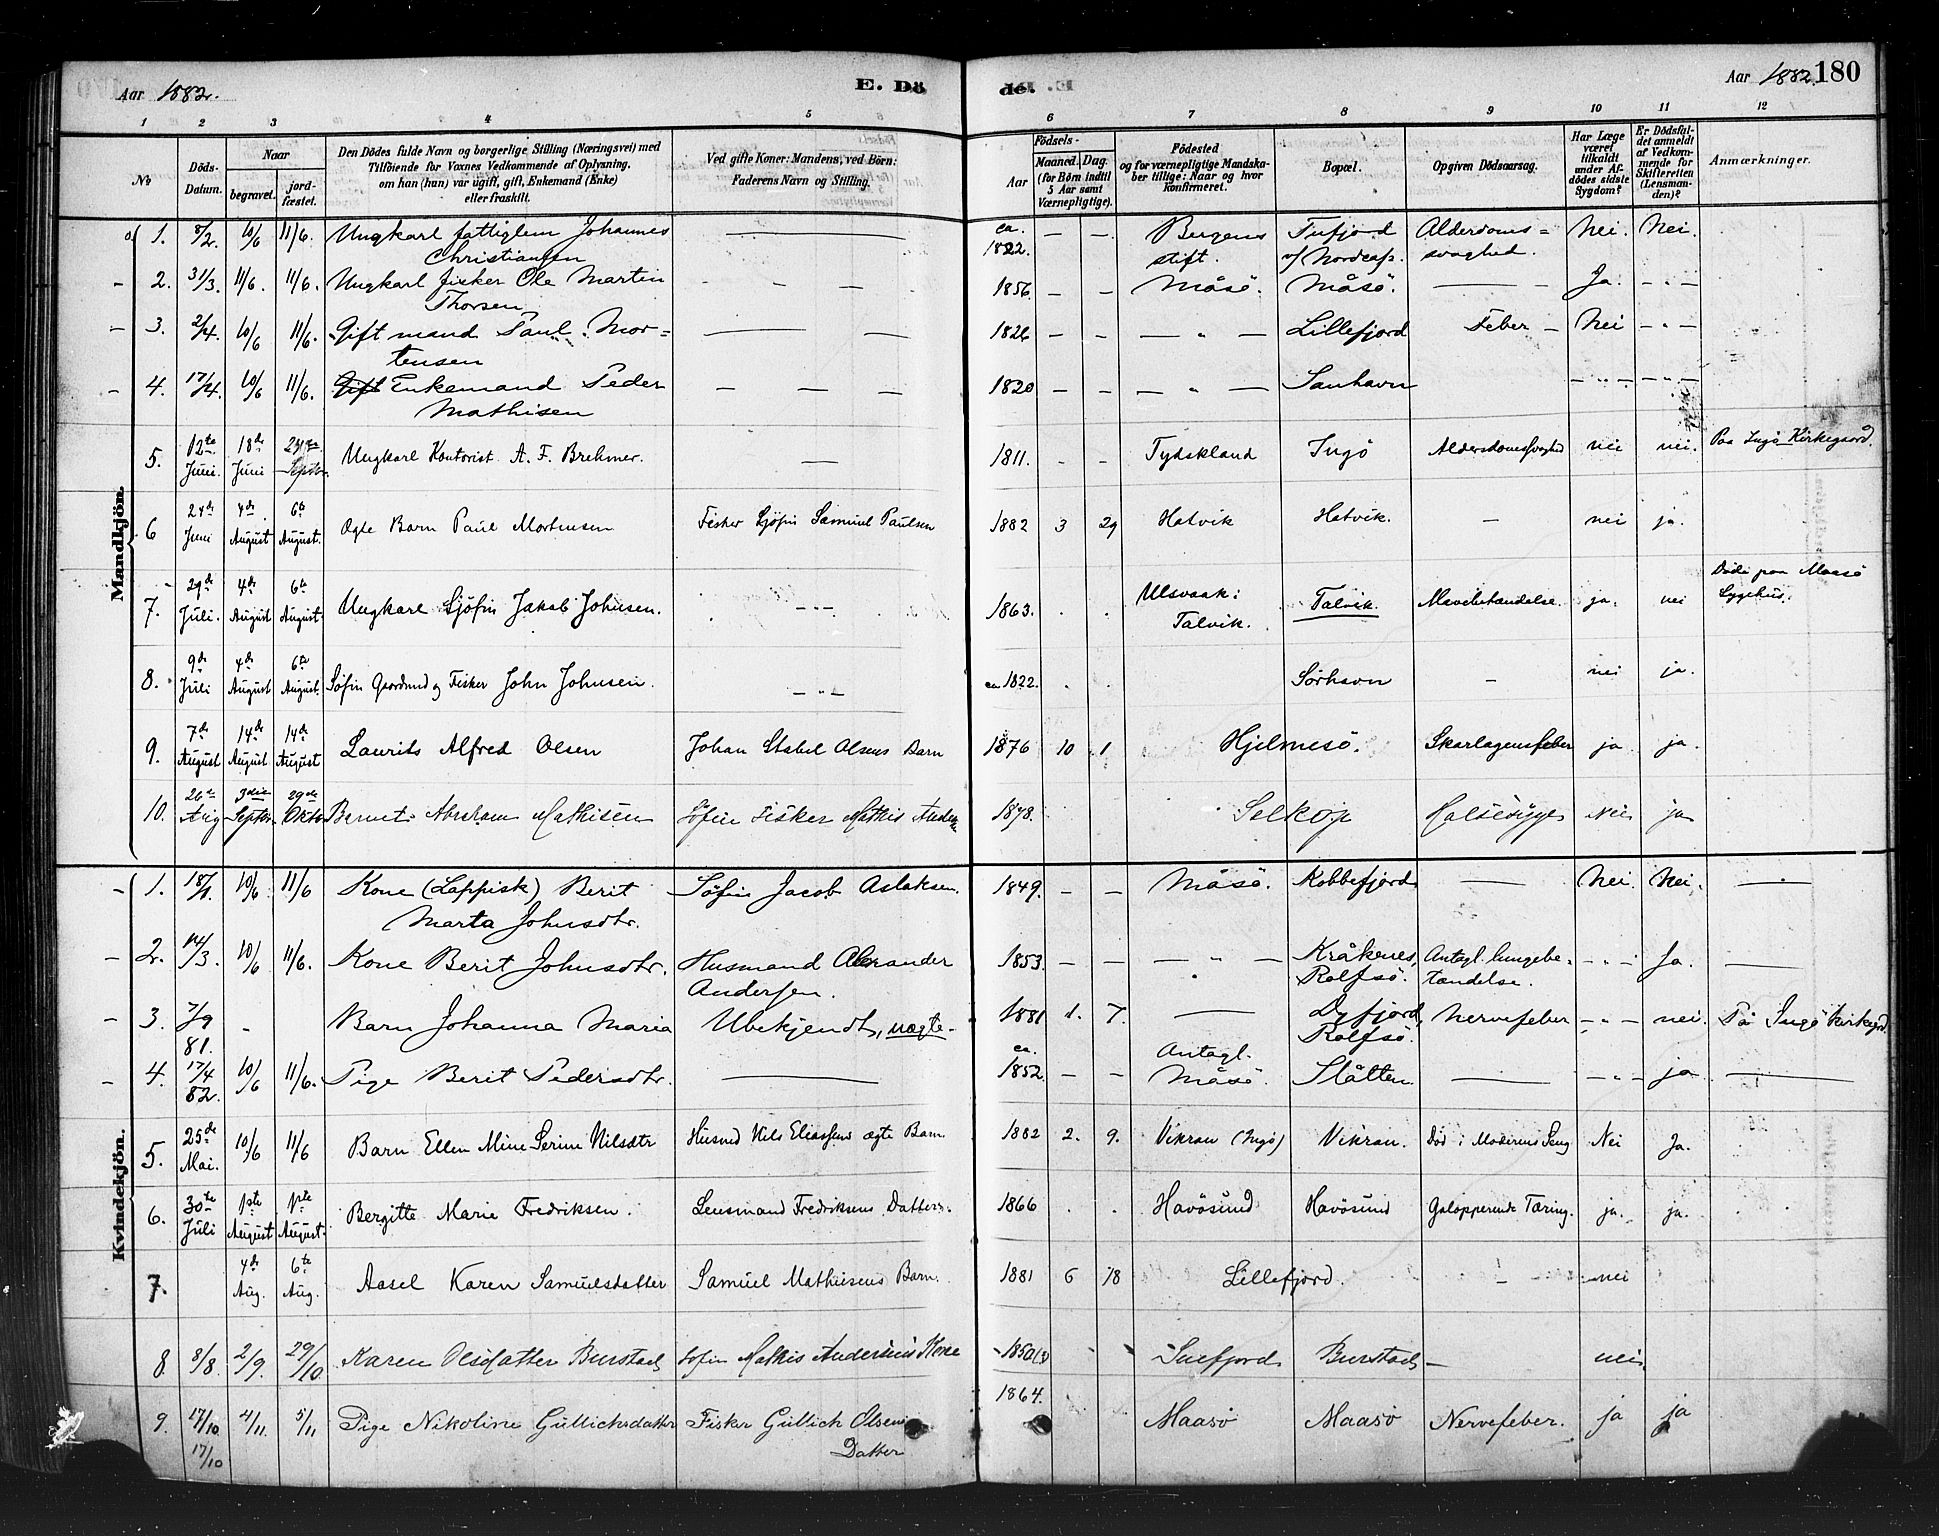 Aar 1882. E. Dö de. Aar 1882. 180
1 2 3 4 5 6 7 8 9 10 11 12
No Döds-Datum. Naar begravet. jord-fæstet. Den Dödes fulde Navn og borgerlige Stilling (Næringsvei) med Tilföiende for Voxnes Vedkommende af Oplysning, om han (hun) var ugift, gift, Enkemand (Enke) eller fraskilt. Ved gifte Koner: Mandens, ved Börn: Faderens Navn og Stilling. Födsels- Aar Maaned. Dag. (for Börn indtil 5 Aar samt Værnepligtige). Födested og for værnepligtige Mandskaber tillige: Naar og hvor Konfirmeret. Bopæl. Opgiven Dödsaarsag. Har Læge været tilkaldt under Afdödes sidste Sygdom? Er Dödsfaldet anmeldt af Vedkommende for Skifteretten (Lensmanden)? Anmærkninger.
Mandkjön.
1. 8/2. 10/6 11/6. Ungkarl fattiglem Johannes Christiansen — ca. 1822. — — Bergens stift. Tufjord v/ Nordcap. Alderdoms= svaghed. Nei. Nei.
2. 31/3. 11/6. 11/6. Ungkarl fisker Ole Martin Thorsen — 1856. — — Måsö. Måsö. — Ja. — " —
3. 2/4. 10/6 11/6. Gift mand Paul Mor= tensen — 1826 — — — " — Lillefjord Feber — Nei — " —
4. 17/4. 10/6 11/6. Gift Enkemand Peder Mathisen — 1820 — — — " — Sanhavn — " — — " —
5. 12te Juni. 18de Juni Septbr. Ungkarl Kontorist A. F. Brehmer. — 1811. — — Tydskland Ingö Alderdomssvaghed nei nei. Paa Ingö Kirkegaard.
6 24de Juni 4de August 6te August. Ægte Barn Paul Mortensen Fisker Sjöfin Samuel Paulsen 1882 3 29 Hatvik Hatvik. — nei ja.
7. 29de Juli. 4de August 6te August. Ungkarl Sjöfin Jakob Johnsen. — " — 1863. Talvik. Talvik. Mavebetændelse. ja. nei Döde paa Maasö Sygehus.
8. 9de Juli 4de August 6te August. Söfin Gaardmd og Fisker John Johnsen. — " — ca 1822. Sörhavn — nei ja.
9. 7de August 14de August 14de August Laurits Alfred Olsen Johan Stabel Olsens Barn 1876 10 1 Hjelmesö. Skarlagensfeber ja ja.
10. 26de Aug 3die Septbr. 29de Oktbr Bernt Abraham Mathisen Söfin Fisker Mathis 1878. Selkop Halssyge Nei ja
Kvindekjön.
1. 18/1. 10/6. 11/6 Kone (Lappisk) Berit Marta Johnsdtr. Söfin Jacob Aslaksen. 1849. — — Måsö. Kobbefjord — Nei. Nei. —
2. 14/3. 10/6 11/6. Kone Berit Johnsdtr. Husmand Alexander Andersen. 1853. — — — " — Kråkenes, Rolfsö. Antagl. lungebe= tændelse. — " — Ja. —
3. 7/9 81. - Barn Johanna Maria Ubekjendt, uægte. 1881 1. 7. — Dyfjord, Rolfsö. Nervefeber — " — nei. På Ingö kirkegrd.
4. 17/4 82. 10/6 11/6. Pige Berit Pedersdtr. — ca. 1852 — — Antagl. Måsö. Slåtten — — " — ja —
5. 25de Mai. 10/6 11/6 Barn Ellen Mine Serine Nilsdtr Husmd Nils Eliassens ægte Barn. 1882 2. 9. Vikran (Ingö) Vikran. Död i Moderens Seng Nei Ja.
6. 30te Juli 1ste August 1ste August. Bergitte Marie Fredriksen. Lensmand Fredriksens Datter. 1866 Havösund Havösund Galopperende Tæring. ja. ja.
7. 4de Aug. 6te Aug. Aasel Karen Samuelsdatter Samuel Mathisens Barn. 1881 6 18 Lillefjord. — nei
8 8/8. 2/9. 29/10. Karen Olsdatter Burstad Söfin Mathis Andersens Kone 1850 Snefjord Burstad — nei
9. 17/10. 17/10 4/11. 5/11 Pige Nikoline Gullichsdatter Fisker Gullich Olsens Datter 1864. Maasö Maasö Nervefeber. ja ja